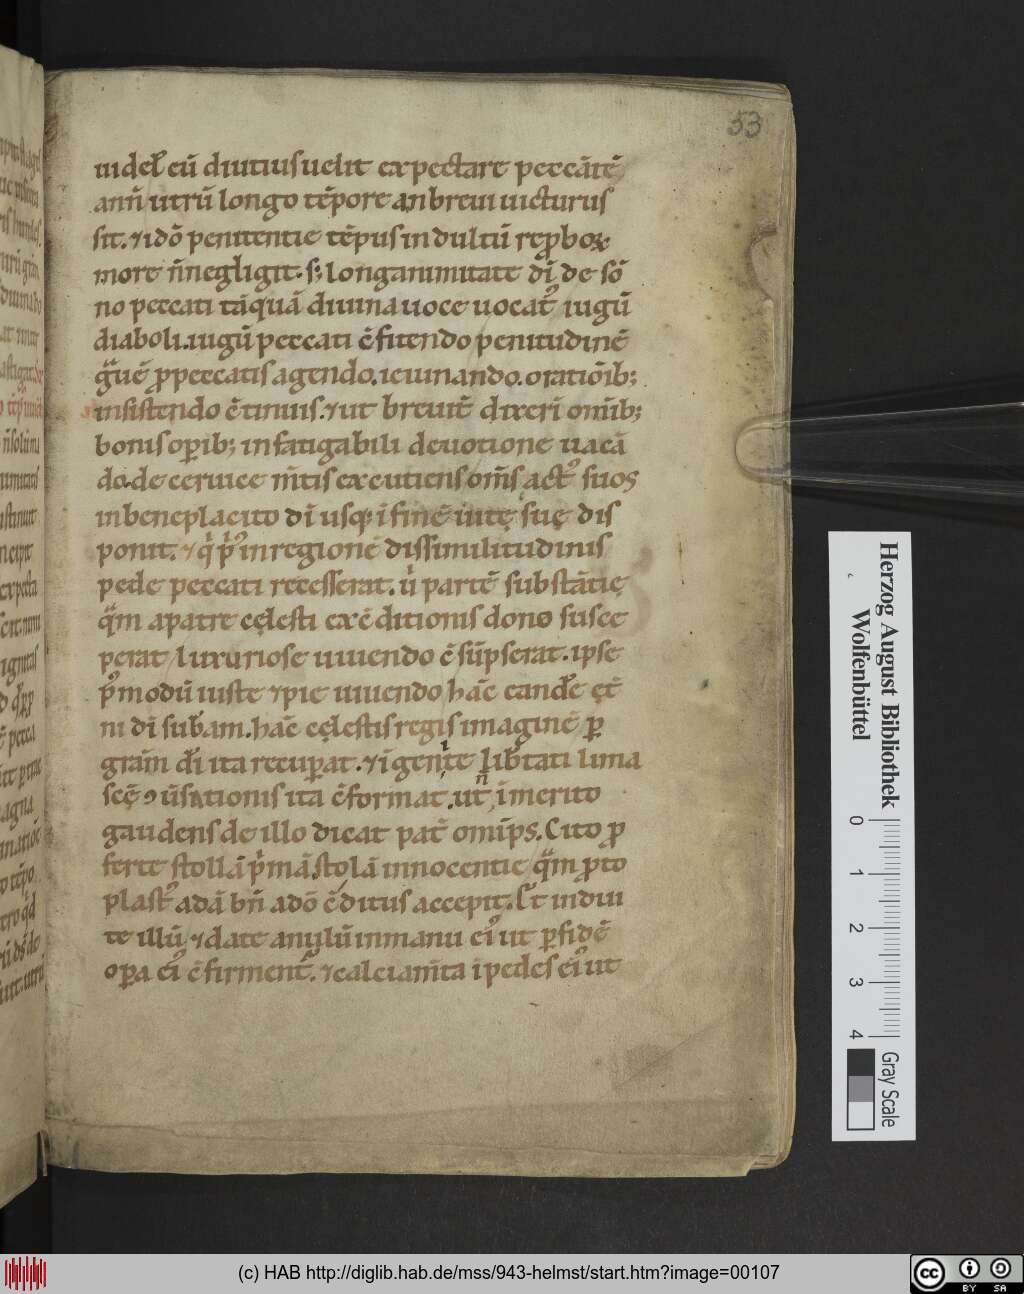 53
uidel̅ eū diutius uelit expectare peccātē
ann̄ utrū longo tēpore an breui uicturus
sit. ⁊ idō penitentie tēpus indultū reꝓboꝝ
more n̄ negligit. sꝫ longanimitate dī de sō
no peccati tāquā diuina uoce uocatᷣ iugū
diaboli. iugū peccati ɔ̄fitendo penitudinē
g̈uē ꝓ peccatis agendo. ieiunando. oratiōib;
insistendo ɔ̄tinuis. ⁊ ut breuit̄ dixerī omīb;
bonis oꝑib; infatigabili deuotione uacā
do. de ceruice m̄tis excutiens om̄s actꝰ suos
in beneplacito dī usq; ī finē uitę suę dis
ponit. ⁊ qͥ pͥꝰ in regionē dissimilitudinis
pede peccati recesserat. uͥ partē substātię
q̈m a patre cęlesti exɔ̄ditionis dono susce
perat luxuriose uiuendo ɔ̄sūpserat. ipse
pͦmodū iuste ⁊ pie uiuendo hāc eandē ęt̄
ni dī sub̄am. hāc cęlestis regis imaginē ꝑ
grām dī ita recuꝑat. ⁊ īgenite lib̄tati luna
scē ɔūsationis ita ɔ̄format. ut n̄ īmerito
gaudens de illo dicat pat̄ omīps. Cito ꝓ
ferte stollā pͥmā. stolā innocentie q̈m ꝓto
plastꝰ adā bn̄ adō ɔ̄ditus accepit. Et indui
te illū. ⁊ date anulū in manu eiꝰ ut ꝑ fidē
oꝑa eiꝰ ɔ̄firmentᷣ. ⁊ calciam̄ta ī pedes eiꝰ ut
Herzog August Bibliothek
Wolfenbüttel
0 1 2 3 4
Gray Scale
(c) HAB http://diglib.hab.de/mss/943-helmst/start.htm?image=00107
cc BY SA